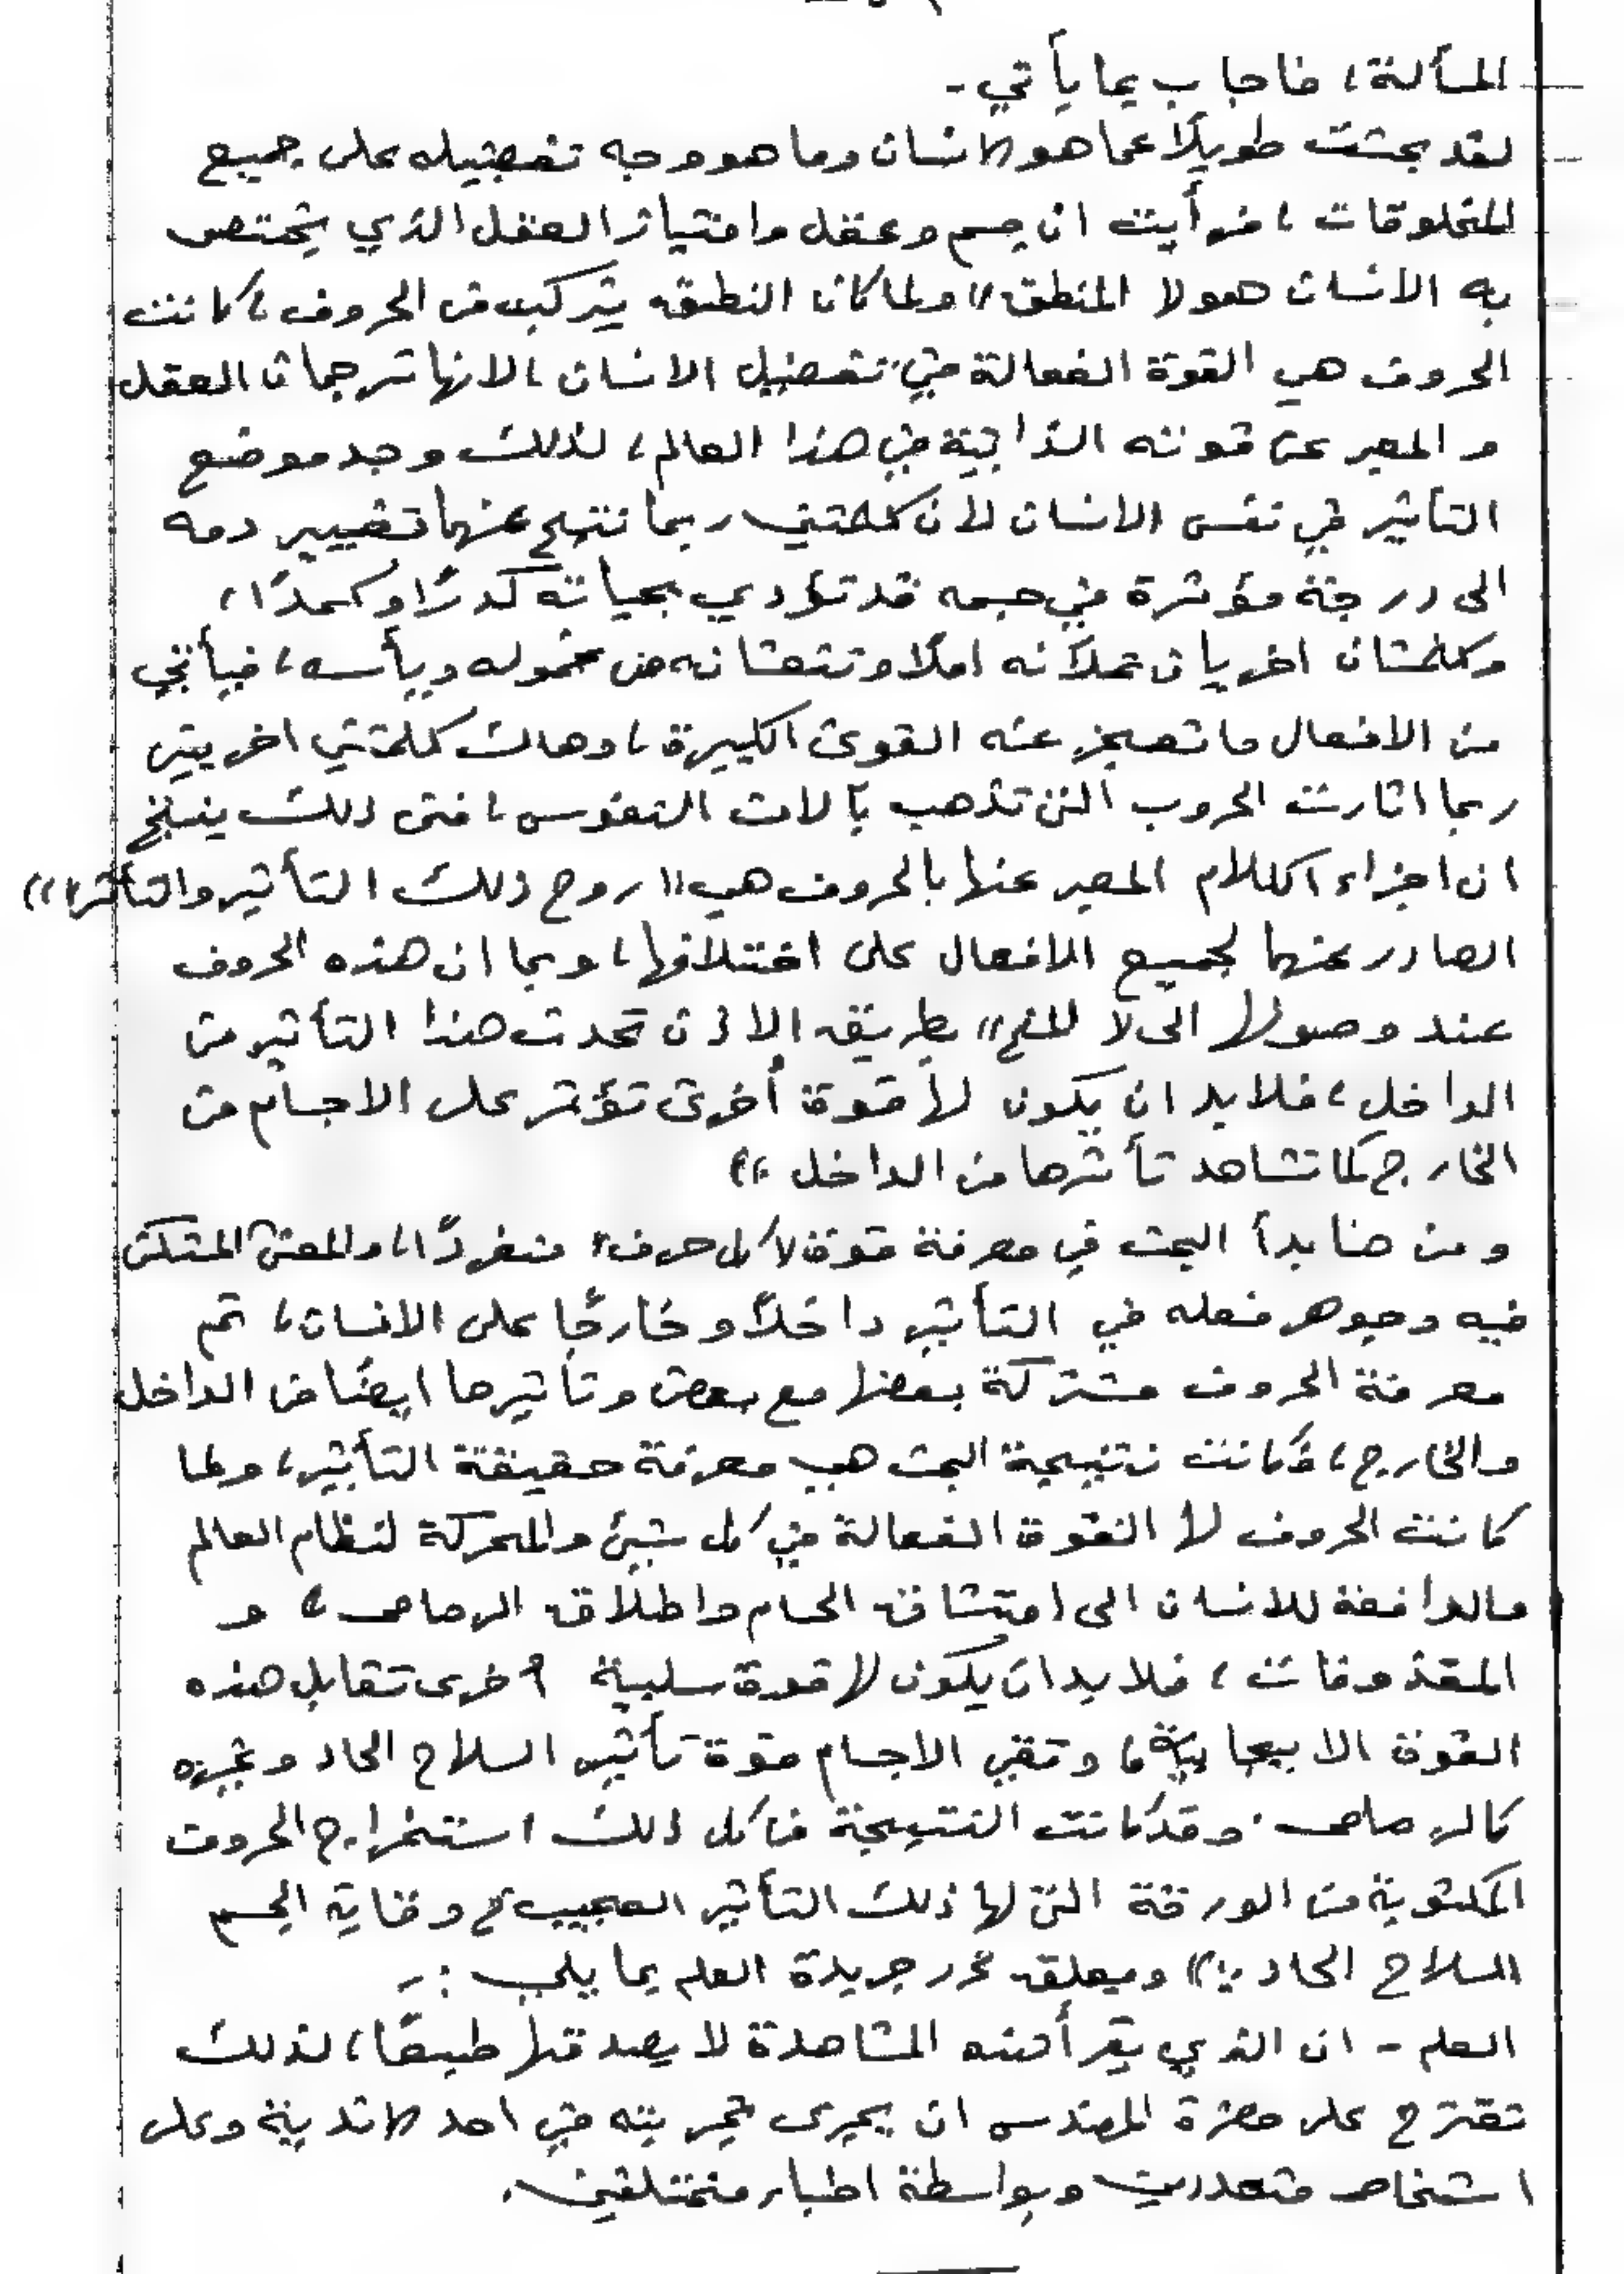 المسألة، فاجاب بما يأتي -
لقد بحثت طويلًا عما هو الانسان وما هو وجه تفضيله على جميع
المخلوقات، فرأيت ان جسم وعقل وامتياز العقل الذي يختص
به الانسان هو «المنطق» ولما كان النطق يتركب من الحروف، كانت
الحروف هي القوة الفعالة في تفضيل الانسان، لانها ترجمان العقل
و المعبر عن قوته الذاتية في هذا العالم، لذلك وجد موضع
التأثير في نفس الانسان لأن كلمتين ربما نتج عنهما تغيير دمه
الى درجة مؤثرة في جسمه قد تؤدي بحياته كدرًا وكمدًا،
وكلمتان اخريان تملآنه املًا وتنعشانه من خموله ويأسه، فيأتي
من الافعال ما تعجز عنه القوى الكبيرة، وهاك كلمتين اخريين
ربما اثارت الحروب التي تذهب بآلات النفوس، فمن ذلك ينتج
ان اجزاء الكلام المعبر عنها بالحروف هي «روح ذلك التأثير والتأثر»
الصادر عنهما لجميع الافعال على اختلافها، وبما ان هذه الحروف
عند وصولها الى «المخ» بطريق الاذن تحدث هذا التأثير من
الداخل، فلا بد ان يكون لها قوة أخرى تؤثر على الاجسام من
الخارج كما تشاهد تأثرها من الداخل»
ومن هنا بدأ البحث في معرفة قوة «كل حرف» منفردًا، والمعنى المتكن
فيه وجوهر فعله في التأثير داخلًا وخارجًا على الانسان، ثم
معرفة الحروف مشتركة بعضها مع بعض وتأثيرها ايضًا من الداخل
والخارج، فكانت نتيجة البحث هي معرفة حقيقة التأثير، ولما
كانت الحروف لها القوة الفعالة في كل شيئ والمحركة لنظام العالم
والدافعة للانسان الى امتشاق الحسام واطلاق الرصاص، و
المقذوفات، فلا بد ان يكون لها قوة سلبية أخرى تقابل هذه
القوة الايجابية، وتقي الاجسام قوة تأثير السلاح الحاد وغيره
كالرصاص. وقد كانت النتيجة من كل ذلك استخراج الحروف
المكتوبة من الورقة التي لها ذلك التأثير العجيب في وقاية الجسم
السلاح الحاد..» ويعلق محرر جريدة العلم بما يلي :-
العلم - ان الذي يقرأ هذه المشاهدة لا يصدقها طبعًا، لذلك
نقترح على حضرة المهندس ان يجرى تجربته في احد الاندية وعلى
اشخاص متعددين وبواسطة اطباء مختلفين.